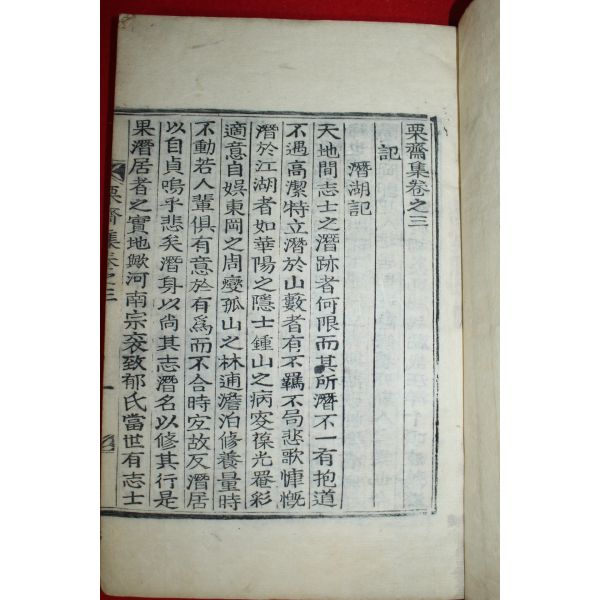 栗齋集卷之三
記
潛湖記
天地間志士之潛跡者何限而其所潛不一有抱道
不遇高潔特立潛於山藪者有不羈不局悲歌慷慨
潛於江湖者如華陽之隱士鍾山之病叜葆光晷彩
適意自娛東岡之周燮孤山之林逋澹泊修養量時
不動若人輩俱有意於有爲而不合時宜故反潛居
以自貞嗚乎悲矣潛身以尙其志潛名以修其行是
果潛居者之實地歟河南宗袞致郁氏當世有志士
栗齋集卷之三 一